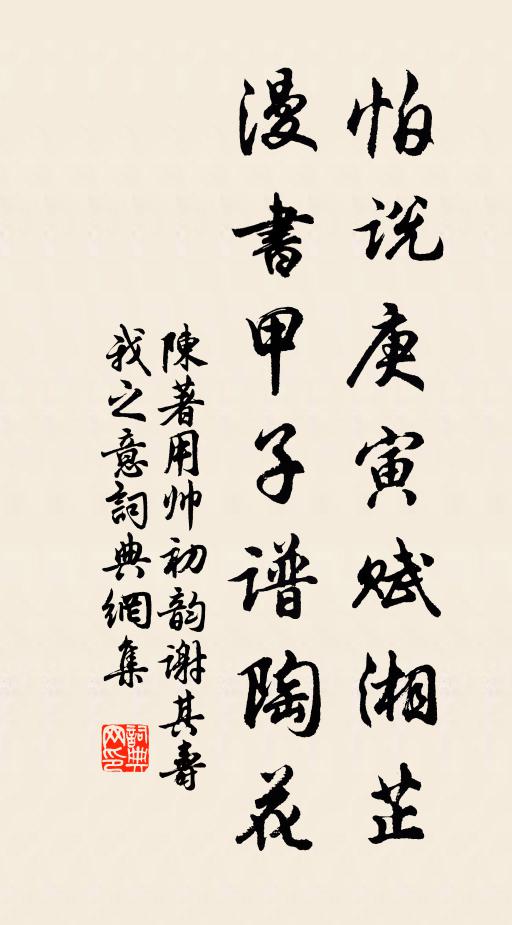 怕说庚寅赋湘芷
漫書甲子谱陶花
陳著用帅初韵谢其壽
我之意詞典網集
詞典网印